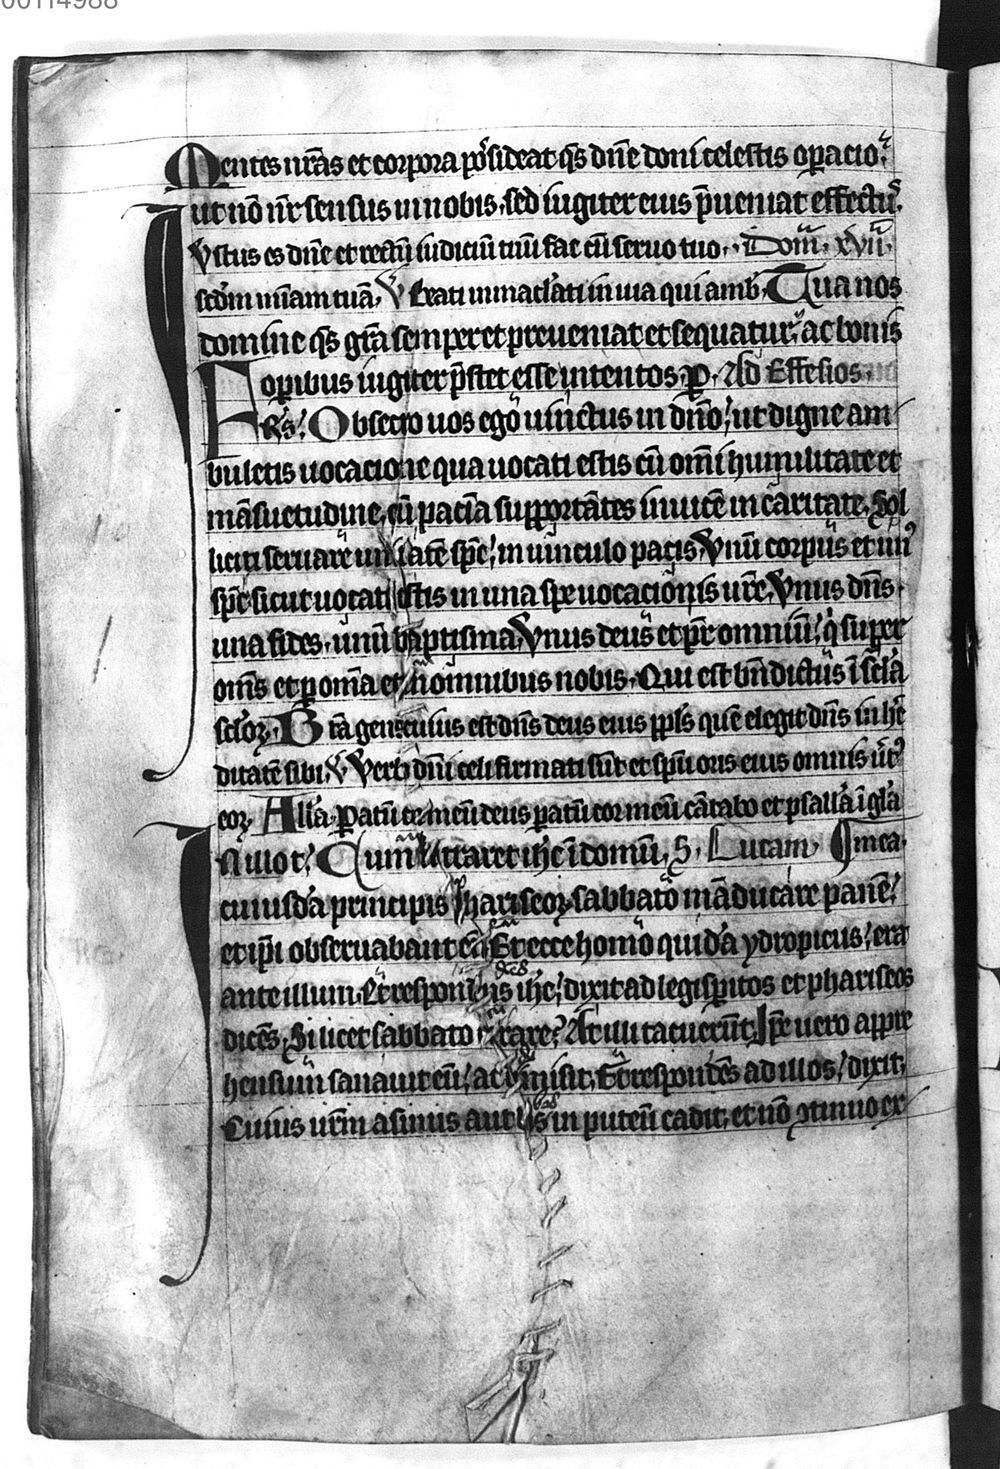 00114988
Mentes nr̄as et corpora p̄osideat q̄s dn̄e doni celestis op̄acio.
ut nō nr̄ sensus in nobis. sed iugiter eius p̄ueniat effectū.
Iustus es dn̄e et rectū iudiciū tuū fac cū seruo tuo. Dom̄. xvii.
scdm̄ mīam tuā. V Beati inmac̄lati in uia qui amb̄. Tua nos
domine q̄s gr̄a semper et preueniat et sequatur. ac bonis
op̄ibus iugiter p̄stet esse intentos. P̄. Ad Effesios.
Fr̄s. Obsecro uos ego uinctus in dn̄o. ut digne am
buletis uocacione qua uocati estis cū om̄i humilitate et
māsuetudine, cū paciā supportātes inuicē in caritate. Sol
liciti seruare unitatē sp̄c. in uinculo pacis. Vnū corpus et un᷒
sp̄c sicut uocati estis in una spe uocacionis ur̄e. Vnus dn̄s.
una fides. unū baptisma. Vnus deus et pr̄ omniū. q̇ super
om̄s et p̄ om̄a et in omnibus nobis. Qui est bn̄dictus ī sc̄la
sc̄loꝝ. B tā gens cuius est dn̄s deus eius ppl̄s quē elegit dn̄s in he᷒
ditatē sibi. V Verb dn̄i celi firmati sūt et spū oris eius omnis uir᷒
eoꝝ. All̄a. Patū cor meū deus patū cor meū cātabo et psallā ī gl̄a
Cum ītraret ih̄c ī domū. S. Lucam. In mea.
cuiusdā principis phariseoꝝ sabbato māducare panē.
et ip̄i obseruabant eū. Et ecce homo quidā ydropicus. erat
ante illum. Et respondens ih̄c. dixit ad legisp̄itos et phariseos
dicēs. Si licet sabbato curare? At illi tacuerūt. Ip̄e uero appre
hensum sanauit eū. ac dimisit. Et respondēs ad illos. dixit.
Cuius ur̄m asinus aut bos in puteū cadit. et nō ꝯtinuo ex